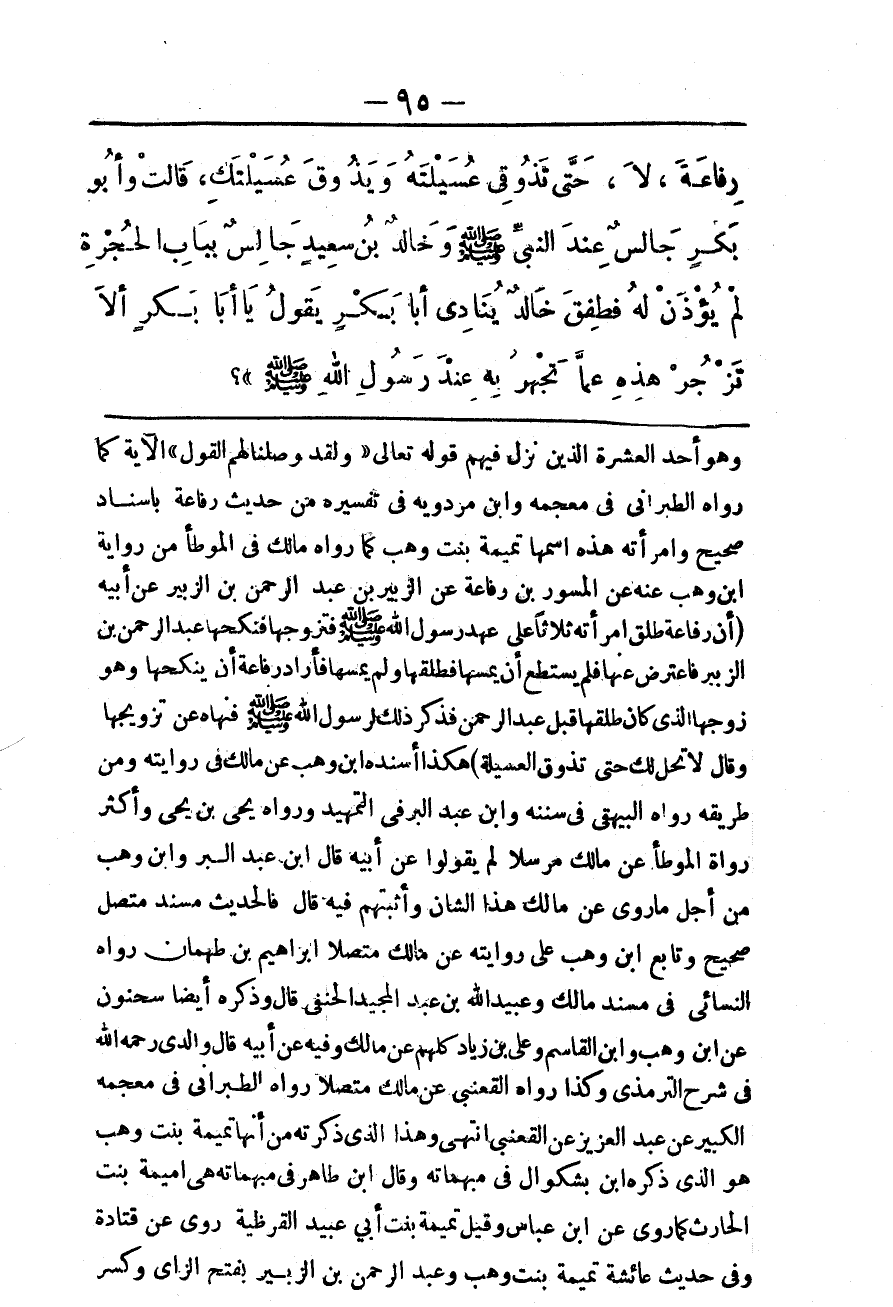 — ٩٥ —
رِفَاعَةَ ، لاَ ، حَتَّى تَذُوقِي عُسَيْلَتَهُ وَيَذُوقَ عُسَيْلَتَكِ، قَالَتْ وَأَبُو
بَكْرٍ جَالِسٌ عِنْدَ النبيِّ ﷺ وَخَالِدُ بْنُ سعِيدٍ جَالِسٌ بِبَابِ الحُجْرَةِ
لَمْ يُؤْذَنْ لهُ فطفِقَ خَالِدٌ يُنَادِى أبا بَكْرٍ يَقُولُ يَاأَبَا بَكرٍ ألاَ
تَزْجُرْ هذِهِ عمَّا تَجْهَرُ بِهِ عِنْدَ رَسُولِ اللهِ ﷺ »؟
وهو أحد العشرة الذين نزل فيهم قوله تعالى « ولقد وصلنا لهم القول » الآية كما
رواه الطبرانى فى معجمه وابن مردويه فى تفسيره من حديث رفاعة باسناد
صحيح وامرأته هذه اسمها تميمة بنت وهب كما رواه مالك فى الموطأ من رواية
ابن وهب عنه عن المسور بن رفاعة عن الزبير بن عبد الرحمن بن الزبير عن أبيه
(أن رفاعة طلق امرأته ثلاثاً على عهد رسول الله ﷺ فتزوجها فنكحها عبد الرحمن بن
الزبير فاعترض عنها فلم يستطع أن يمسها فطلقها ولم يمسها فأراد رفاعة أن ينكحها وهو
زوجها الذى كان طلقها قبل عبد الرحمن فذكر ذلك لرسول الله ﷺ فنهاه عن تزويجها
وقال لا تحل لك حتى تذوق العسيلة) هكذا أسنده ابن وهب عن مالك فى روايته ومن
طريقه رواه البيهقى فى سننه وابن عبد البر فى التمهيد ورواه يحيى بن يحيى وأكثر
رواة الموطأ عن مالك مرسلا لم يقولوا عن أبيه قال ابن عبد البر وابن وهب
من أجل ماروى عن مالك هذا الشان وأثبتهم فيه قال فالحديث مسند متصل
صحيح وتابع ابن وهب على روايته عن مالك متصلا ابراهيم بن طهمان رواه
النسائى فى مسند مالك وعبيد الله بن عبد المجيد الحنفى قال وذكره أيضا سحنون
عن ابن وهب وابن القاسم وعلى بن زياد كلهم عن مالك وفيه عن أبيه قال والدى رحمه الله
فى شرح الترمذى وكذا رواه القعنبي عن مالك متصلا رواه الطبرانى فى معجمه
الكبير عن عبد العزيز عن القعنبي انتهى وهذا الذى ذكرته من أنها تميمة بنت وهب
هو الذى ذكره ابن بشكوال فى مبهماته وقال ابن طاهر فى مبهماته هى اميمة بنت
الحارث كما روى عن ابن عباس وقيل تميمة بنت أبي عبيد القرظية روى عن قتادة
وفى حديث عائشة تميمة بنت وهب وعبد الرحمن بن الزبير بفتح الزاى وكسر